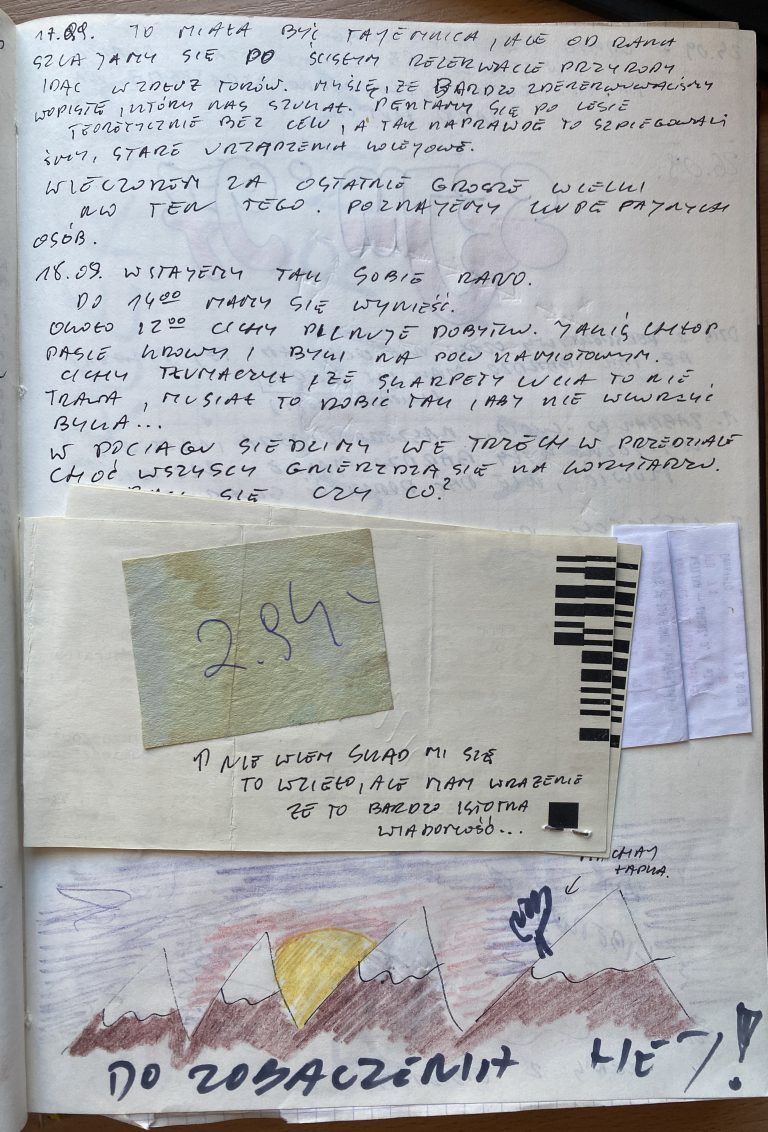 17.09. TO MIAŁA BYĆ TAJEMNICA, ALE OD RANA
SZLAJAMY SIĘ PO ŚCISŁYM REZERWACIE PRZYRODY
IDĄC WZDŁUŻ TORÓW. MYŚLĘ, ŻE BARDZO ZDENERWOWALIŚMY
WOPISTĘ, KTÓRY NAS SZUKAŁ. PENTAMY SIĘ PO LESIE
TEORETYCZNIE BEZ CELU, A TAK NAPRAWDĘ TO SZPIEGOWALI
ŚMY, STARE URZĄDZENIA KOLEJOWE.
WIECZOREM ZA OSTATNIE GROSZE WIELKI
NO TEN TEGO. POZNAJEMY KUPĘ FAJNYCH
OSÓB.
18.09. WSTAJEMY TAK SOBIE RANO.
DO 14⁰⁰ MAMY SIĘ WYNIEŚĆ.
OKOŁO 12⁰⁰ CICHY PILNUJE DOBYTKU. JAKIŚ CHŁOP
PASIE KROWY I BYKI NA POLU NAMIOTOWYM.
CICHY TŁUMACZYŁ, ŻE SKARPETY LUCIA TO NIE
TRAWA, MUSIAŁ TO ROBIĆ TAK, ABY NIE WKURZYĆ
BYKA...
W POCIĄGU SIEDZIMY WE TRZECH W PRZEDZIALE
CHOĆ WSZYSCY GNIEŻDŻĄ SIĘ NA KORYTARZU.
SIĘ CZY CO?
2.94.-
↑ NIE WIEM SKĄD MI SIĘ
TO WZIĘŁO, ALE MAM WRAŻENIE
ŻE TO BARDZO ISTOTNA
WIADOMOŚĆ...
MACHAM
ŁAPKĄ.
DO ZOBACZENIA HEJ!